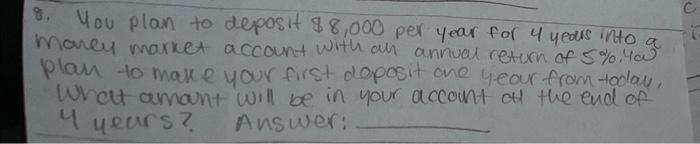 8. You plan to deposit $8,000 per year for 4 years into a
money market account with an annual return of 5%. You
plan to make your first doposit one year from today,
What amant will be in your account at the end of
4 years? Answer: